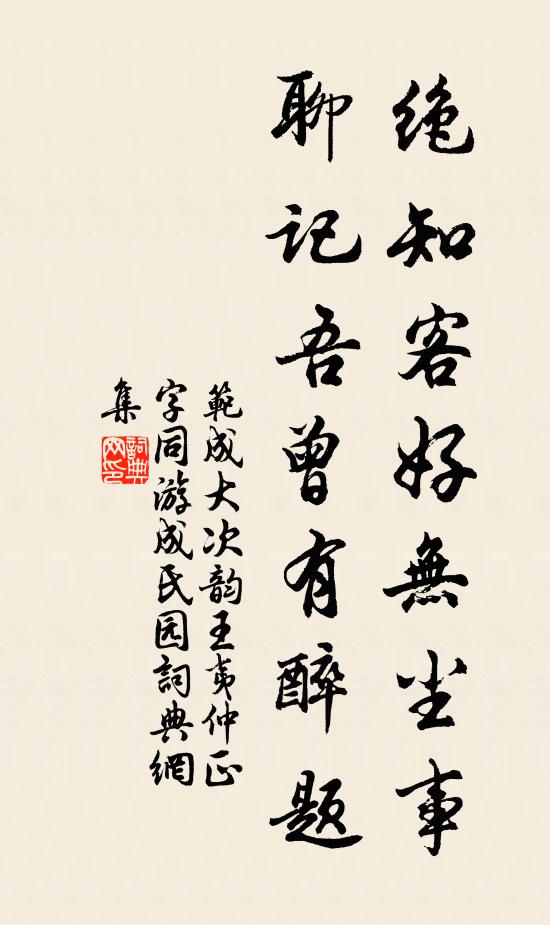 绝知客好無尘事
聊记吾曾有醉题
範成大次韵王夷仲正
字同游成氏园詞典網
集
詞典
网印